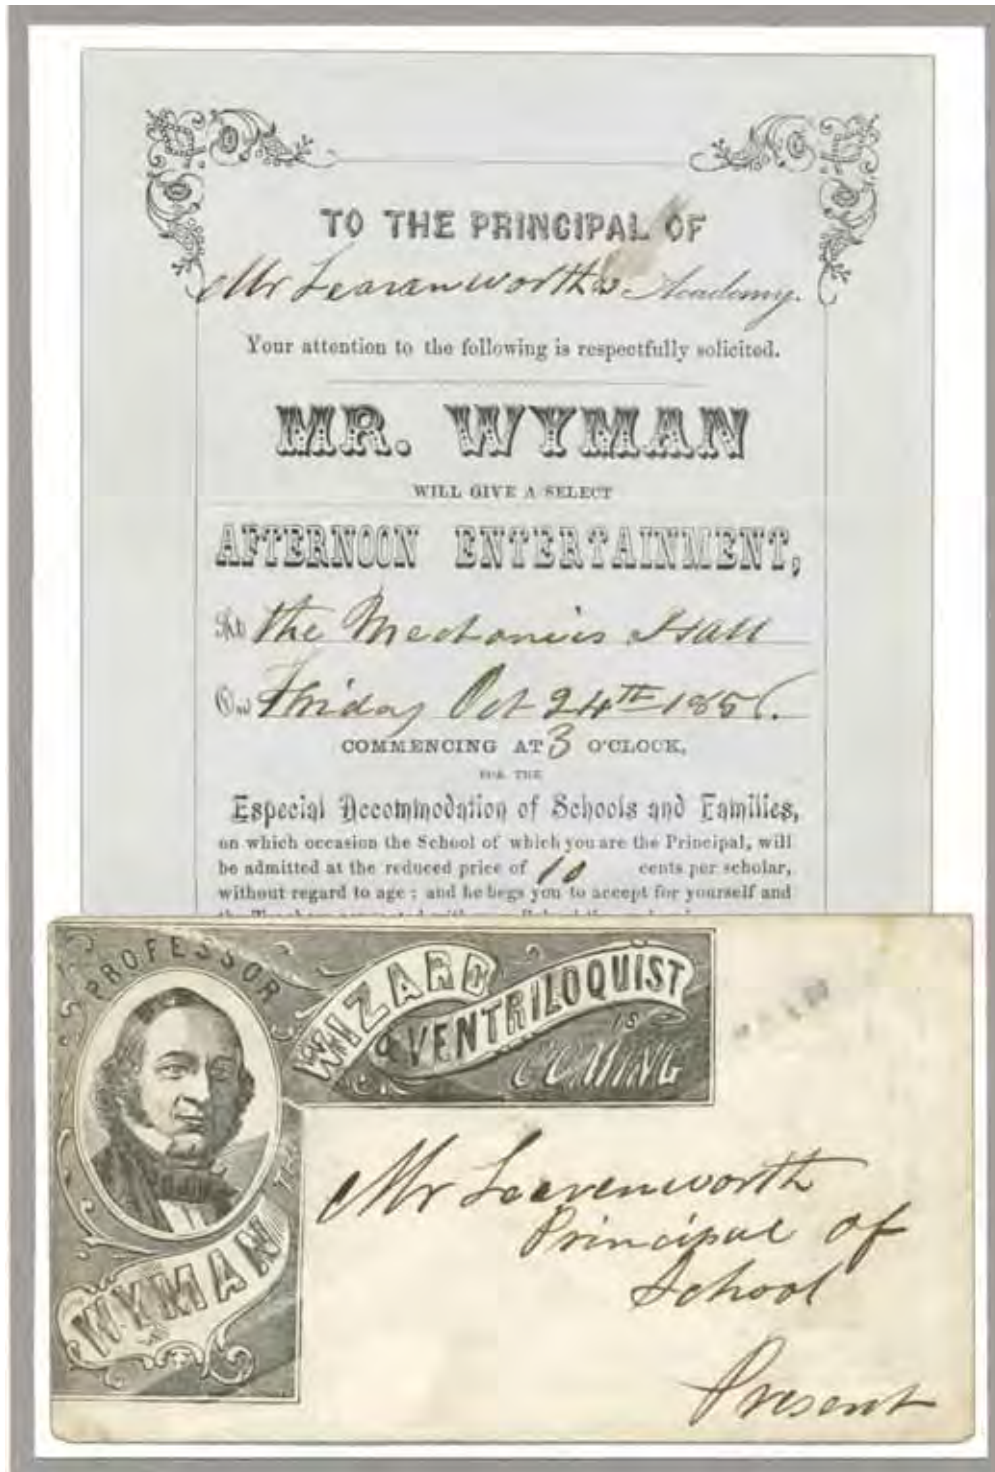 TO THE PRINCIPAL OF
Mr Leavanworths Academy.
Your attention to the following is respectfully solicited.
MR. WYMAN
WILL GIVE A SELECT
AFTERNOON ENTERTAINMENT,
At the Mechanics Hall
On Friday Oct 24TH 1856.
COMMENCING AT 3 O'CLOCK,
FOR THE
Especial Accommodation of Schools and Families,
on which occasion the School of which you are the Principal, will
be admitted at the reduced price of 10 cents per scholar,
without regard to age ; and he begs you to accept for yourself and
PROFESSOR
WYMAN
THE
WIZARD
& VENTRILOQUIST
IS
COMING
Mr Leavenworth
Principal of
School
Present